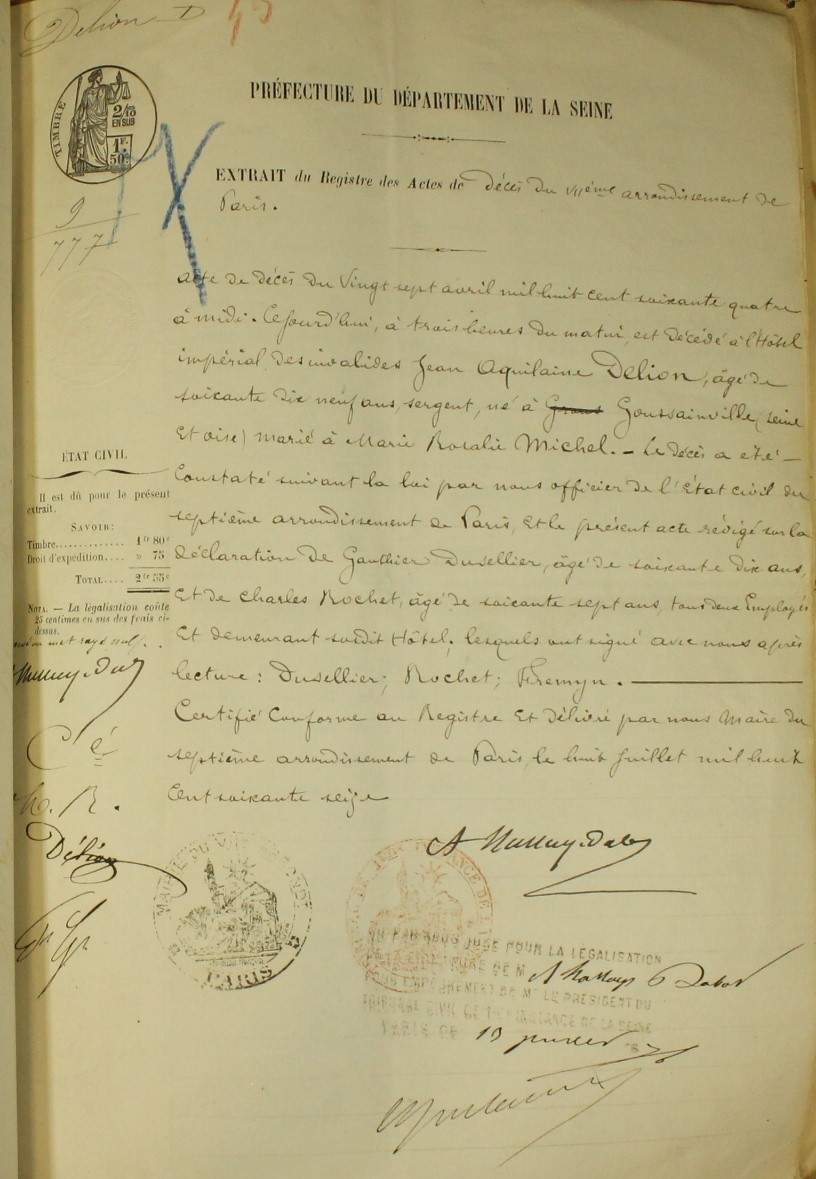 Delion
PRÉFECTURE DU DÉPARTEMENT DE LA SEINE
TIMBRE
2/10
EN SUS
1F.
50c.
EXTRAIT du Registre des Actes de Décès du VIIème arrondissement de
Paris.
9
777
acte de Décès du Vingt sept avril mil huit cent soixante quatre
à midi. Cejourd'hui, à trois heures du matin, est décédé à l'Hôtel
impérial des invalides Jean Aquilaine Delion, âgé de
soixante dix neuf ans, sergent, né à Goussainville (seine
et oise) marié à Marie Rosalie Michel. — Le décès a été —
Constaté suivant la loi par nous officier de l'État civil du
septième arrondissement de Paris, et le présent acte rédigé sur la
déclaration de Gauthier Dusellier, âgé de soixante dix ans,
et de Charles Rochet, âgé de soixante sept ans, tous deux Employés
et demeurant susdit Hôtel, lesquels ont signé avec nous après
lecture : Dusellier; Rochet; Firemyn. —
Certifié Conforme au Registre et Délivré par nous Maire du
septième arrondissement de Paris, le huit Juillet mil huit
Cent soixante seize
ÉTAT CIVIL
Il est dû pour le présent
extrait.
SAVOIR:
Timbre.............. 1fr 80c
Droit d'expédition.... » 75
TOTAL.... 2fr 55c
NOTA. — La légalisation coûte
25 centimes en sus des frais ci-
dessus.
Cé
Délion
MAIRIE DU VIIe ARRONDt
PARIS
VU PAR NOUS JUGE POUR LA LÉGALISATION
DE LA SIGNATURE DE M
POUR EMPÊCHEMENT DE Mr LE PRÉSIDENT DU
TRIBUNAL CIVIL DE 1re INSTANCE DE LA SEINE
PARIS CE